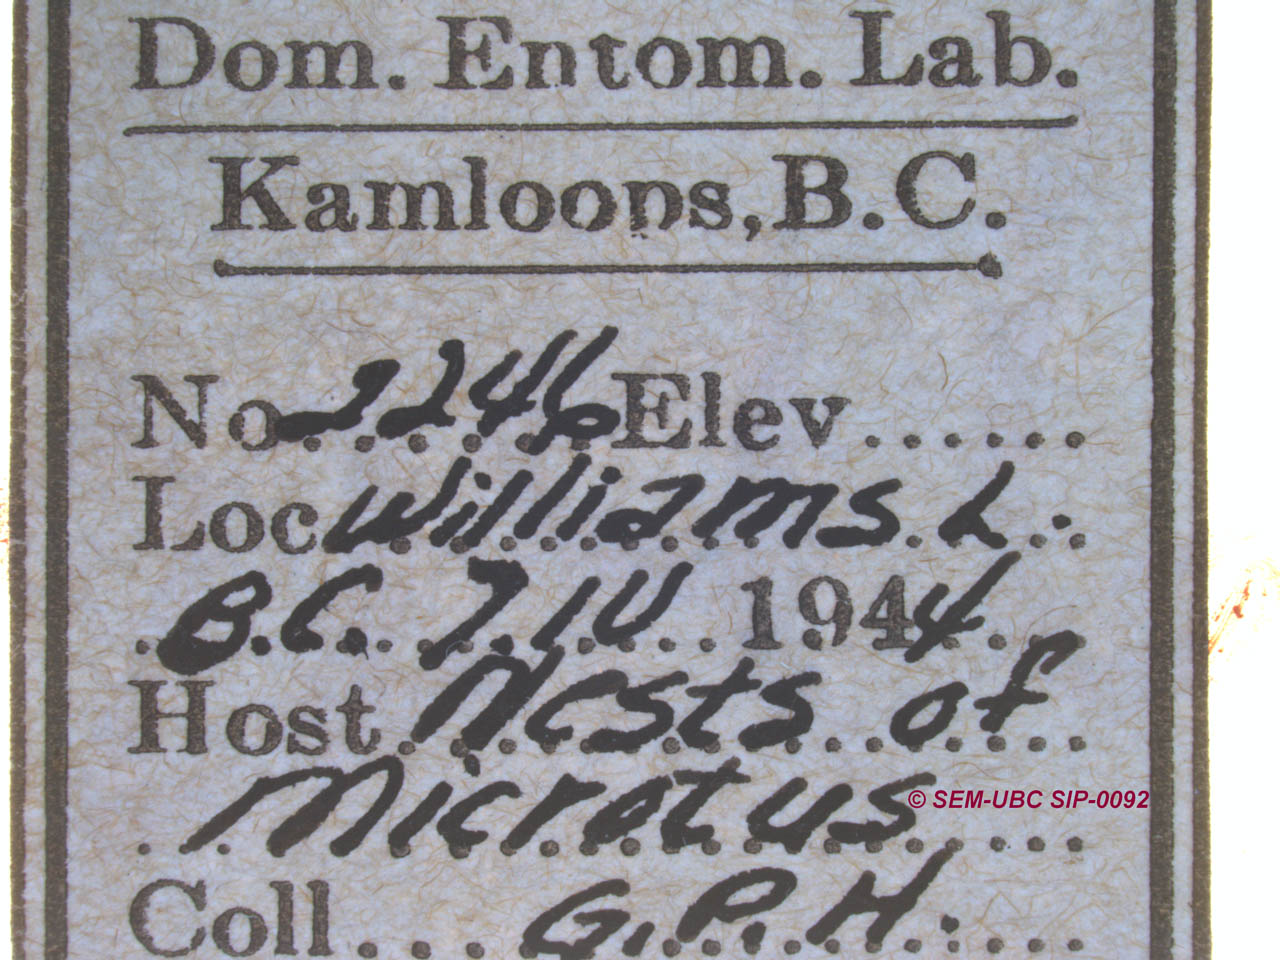 Dom. Entom. Lab.
Kamloops, B.C.
No. 2246 Elev. ......
Loc. Williams L.
B.C. 7.IV 1944
Host Nests of
Microtus
© SEM-UBC SIP-0092
Coll... G.P.H.